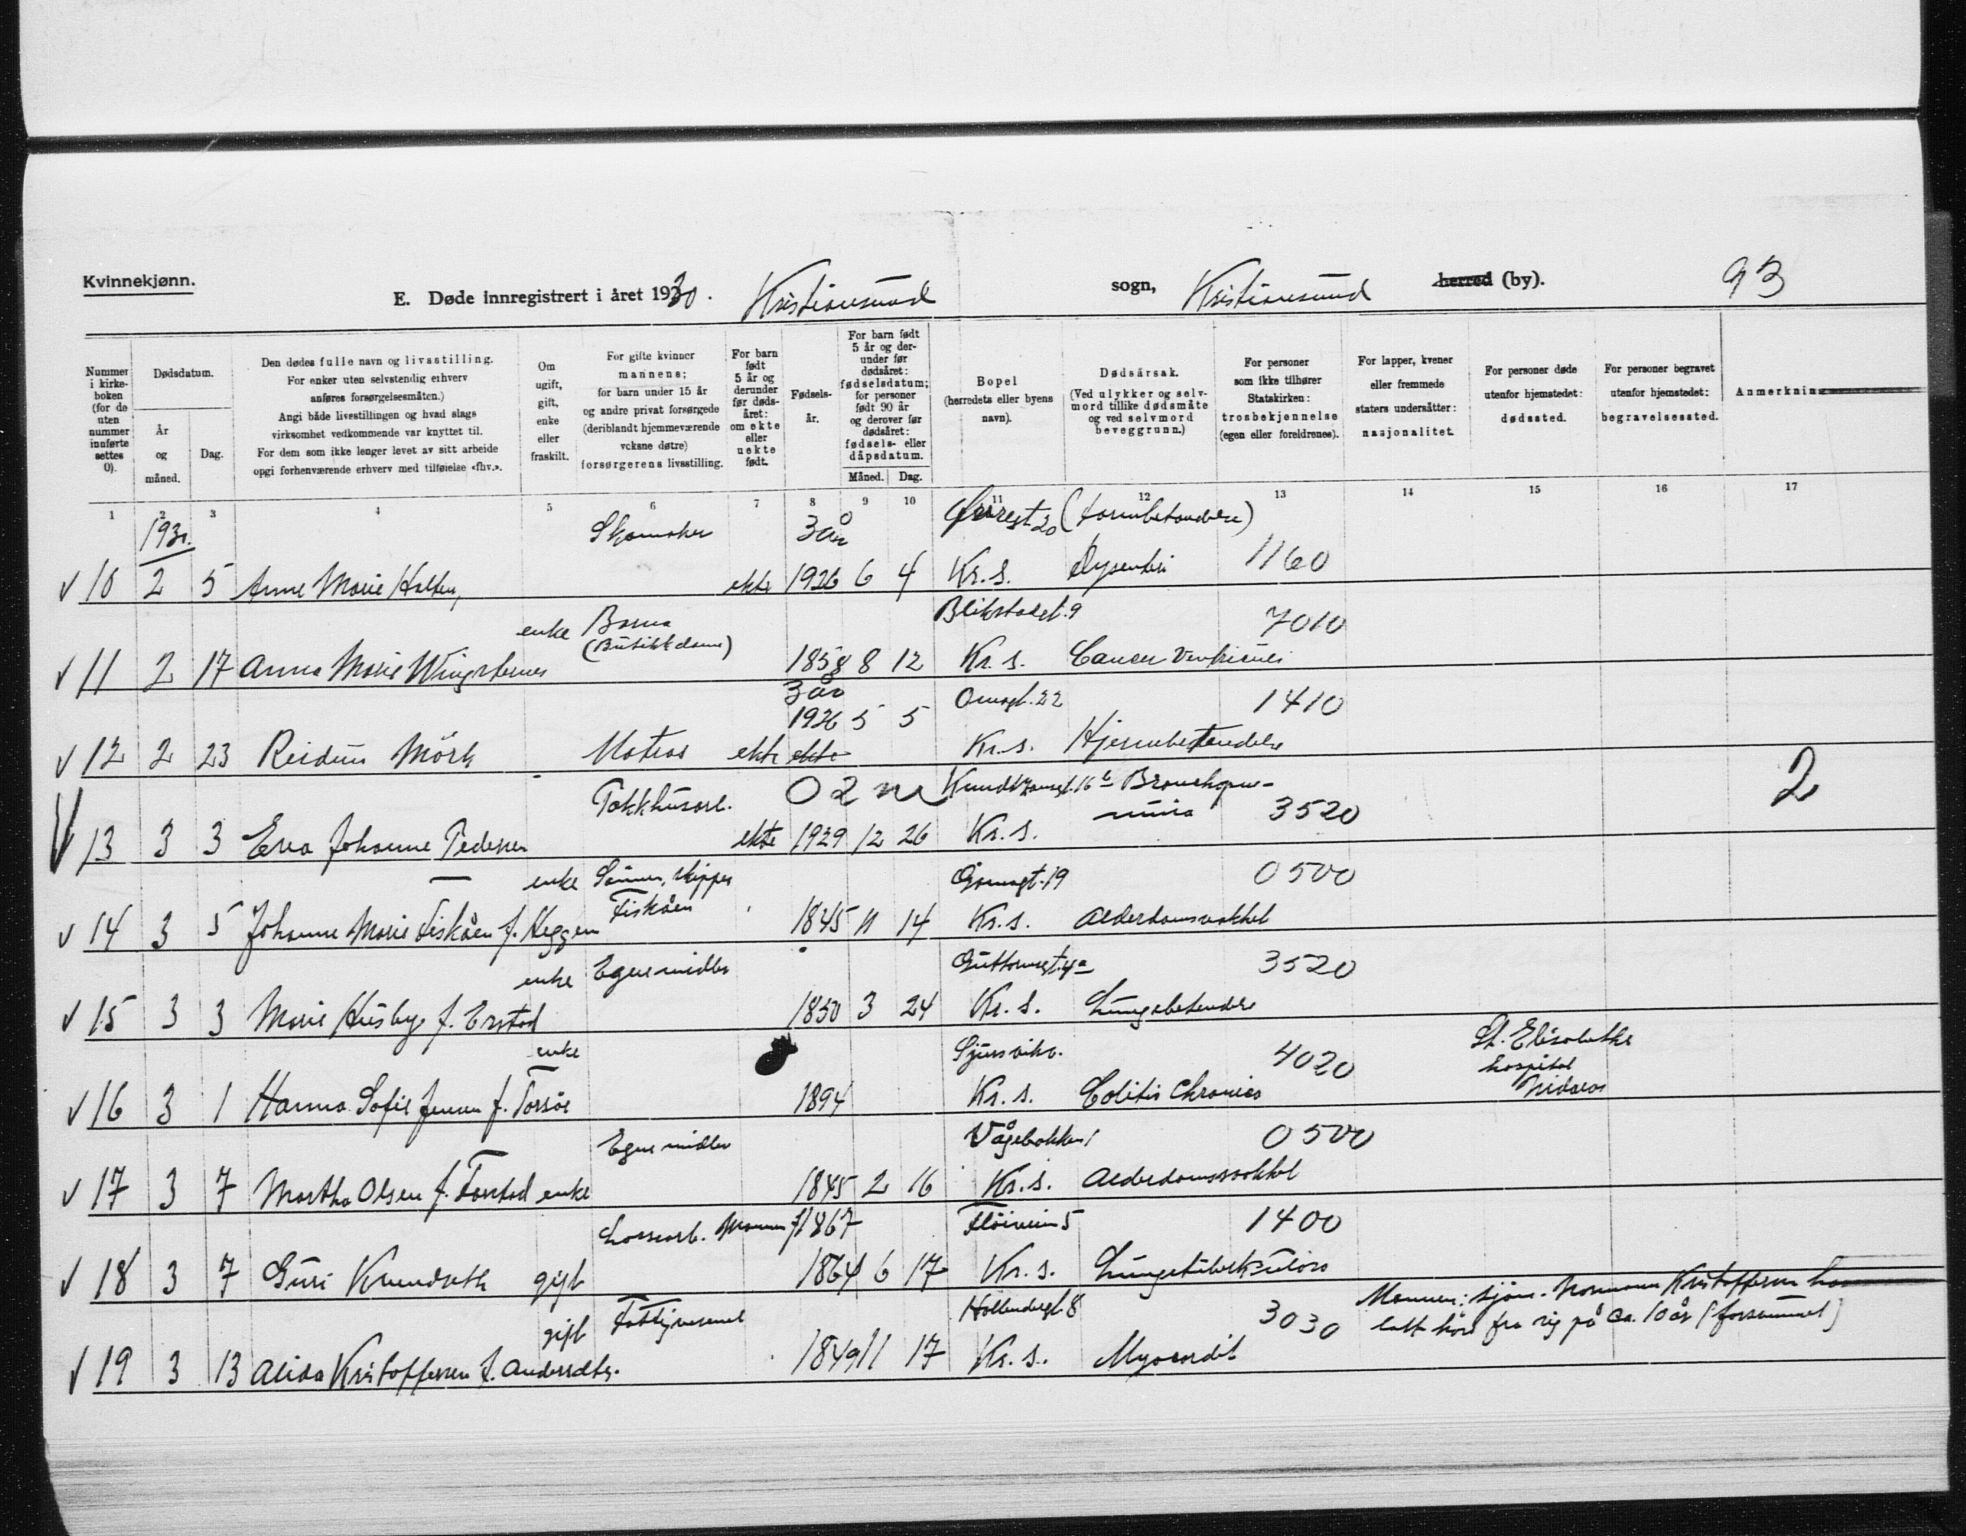 Kvinnekjønn.
E. Døde innregistrert i året 1930. Kristiansund sogn, Kristiansund herred (by). 93
Nummer i kirkeboken (for de uten nummer innførte settes 0).
Dødsdatum.
År og måned.
Dag.
Den dødes fulle navn og livsstilling.
For enker uten selvstendig erhverv
anføres forsørgelsesmåten.)
Angi både livsstillingen og hvad slags
virksomhet vedkommende var knyttet til.
For dem som ikke lenger levet av sitt arbeide
opgi forhenværende erhverv med tilføielse «fhv.».
Om ugift, gift, enke eller fraskilt.
For gifte kvinner
mannens;
for barn under 15 år
og andre privat forsørgede
(deriblandt hjemmeværende
voksne døtre)
forsørgerens livsstilling.
For barn født 5 år og derunder før dødsåret: om ekte eller uekte født.
Fødselsår.
For barn født 5 år og derunder før dødsåret: fødselsdatum; for personer født 90 år og derover før dødsåret: fødsels- eller dåpsdatum.
Måned. Dag.
Bopel
(herredets eller byens
navn).
Dødsårsak.
(Ved ulykker og selvmord tillike dødsmåte
og ved selvmord
beveggrunn.)
For personer
som ikke tilhører
Statskirken:
trosbekjennelse
(egen eller foreldrenes).
For lapper, kvener
eller fremmede
staters undersåtter:
nasjonalitet.
For personer døde
utenfor hjemstedet:
dødssted.
For personer begravet
utenfor hjemstedet:
begravelsessted.
Anmerkning
1 2 3 4 5 6 7 8 9 10 11 12 13 14 15 16 17
1930. Skomaker 3 år 20 (Tarmbetændelse)
10 2 5 Anne Marie Holten, ekte 1926 6 4 Kr. S. Dysenteri 1160
enke Barna (Butikkdame) 9 7010
11 2 17 Anna Marie 1858 8 12 Kr. S. Cancer Ventriculi
3 år 22 1410
1926 5 5
12 2 23 Reidun Mörk Matros ekte ekte Kr. S. Hjernebetendelse
Tokkhusarb. 0 2 m 16 b Bronchopneumonia 3520 2
13 3 3 Eva Johanne Pedersen ekte 1929 12 26 Kr. S.
enke Sønnen, skipper Fiskåen 19 0500
14 3 5 Johanne Marie Fiskåen f. Heggem 1845 11 14 Kr. S. Alderdomssvakhet
enke Egne midler Guttormsgt. 4a 3520
15 3 3 Marie Husby f. Erstad 1850 3 24 Kr. S. Lungebetendelse
enke Sjursvikv. 4020 St. Elisabeths hospital Nidaros
16 3 1 Hanna Sofie Jensen f. Torsöe 1894 Kr. S. Colitis chronica
Egne midler Vågebakken 1 0500
17 3 7 Martha Olsen f. Farstad enke 1845 2 16 Kr. S. Alderdomssvakhet
Lossearb. Mannen f. 1867 Fløiveien 5 1400
18 3 7 Guri Knudseth gift 1864 6 17 Kr. S. Lungetuberkulose
gift Fattigvesenet Hollendergt. 8 3030 Mannen: sjøm. Normann Kristoffersen har
latt höre fra sig på ca. 10 år (forsvunnet)
19 3 13 Alida Kristoffersen f. Andersdtr. 1849 11 17 Kr. S. Myocardit